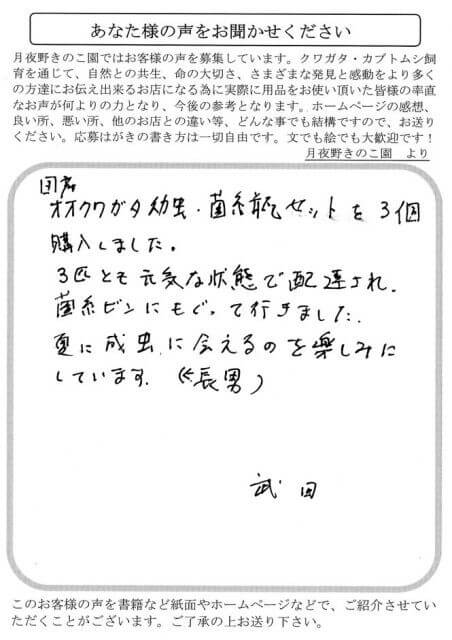 あなた様の声をお聞かせください
月夜野きのこ園ではお客様の声を募集しています。クワガタ・カブトムシ飼
育を通じて、自然との共生、命の大切さ、さまざまな発見と感動をより多く
の方達にお伝え出来るお店になる為に実際に用品をお使い頂いた皆様の率直
なお声が何よりの力となり、今後の参考となります。ホームページの感想、
良い所、悪い所、他のお店との違い等、どんな事でも結構ですので、お送り
ください。応募はがきの書き方は一切自由です。文でも絵でも大歓迎です！
月夜野きのこ園　より
国産
オオクワガタ幼虫・菌糸瓶セットを3個
購入しました。
3匹とも元気な状態で配達され、
菌糸ビンにもぐって行きました。
夏に成虫に会えるのを楽しみに
しています。(長男)
武田
このお客様の声を書籍など紙面やホームページなどで、ご紹介させてい
ただくことがございます。ご了承の上お送り下さい。